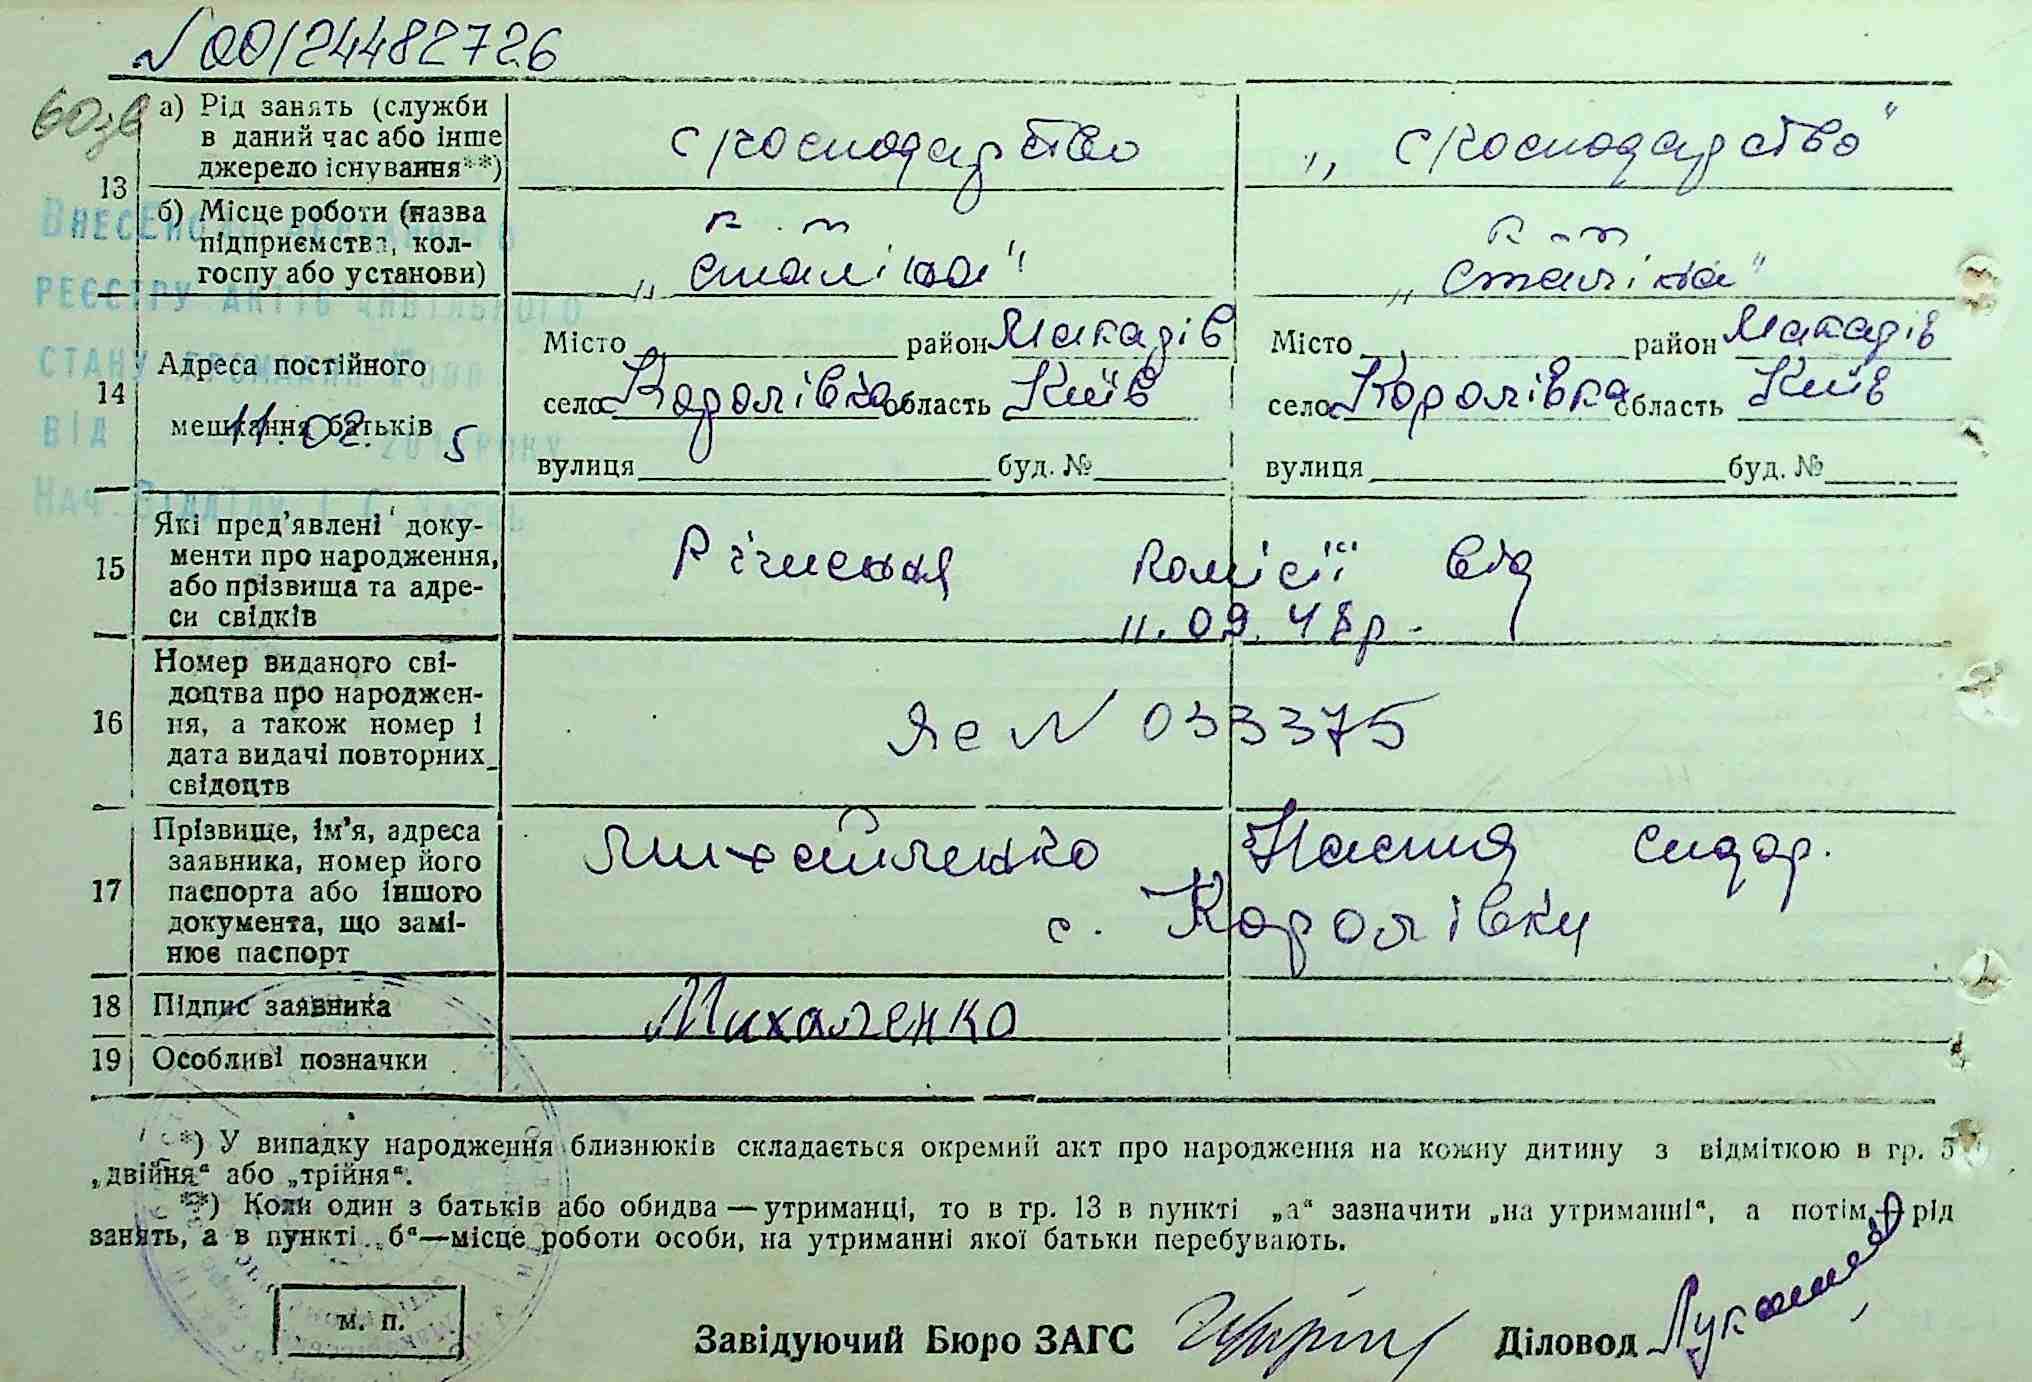 № 00124482726
а) Рід занять (служби
в даний час або інше
джерело існування**)
с/господарство
„ с/господарство"
13
б) Місце роботи (назва
підприємства, кол-
госпу або установи)
к-п
„Сталіна"
к-п
„Сталіна"
ВНЕСЕНО ДО ДЕРЖАВНОГО
РЕЄСТРУ АКТІВ ЦИВІЛЬНОГО
СТАНУ ГРОМАДЯН
ВІД 11.02. 2015 РОКУ
НАЧ. ВІДДІЛУ
14
Адреса постійного
мешкання батьків
Місто район Макарів
село Королівка область Київ
вулиця буд. №
Місто район Макарів
село Королівка область Київ
вулиця буд. №
15
Які пред'явлені доку-
менти про народження,
або прізвища та адре-
си свідків
Рішення комісії від
11.09.48р.
16
Номер виданого сві-
доцтва про народжен-
ня, а також номер і
дата видачі повторних
свідоцтв
Яс № 033375
17
Прізвище, ім'я, адреса
заявника, номер його
паспорта або іншого
документа, що замі-
нює паспорт
Михайленко Настя Сидор.
с. Королівки
18
Підпис заявника
Михаленко
19
Особливі позначки
*) У випадку народження близнюків складається окремий акт про народження на кожну дитину з відміткою в гр. 5
„двійня“ або „трійня“.
**) Коли один з батьків або обидва — утриманці, то в гр. 13 в пункті „а“ зазначити „на утриманні“, а потім — рід
занять, а в пункті „б“—місце роботи особи, на утриманні якої батьки перебувають.
м. п.
Завідуючий Бюро ЗАГС
Діловод